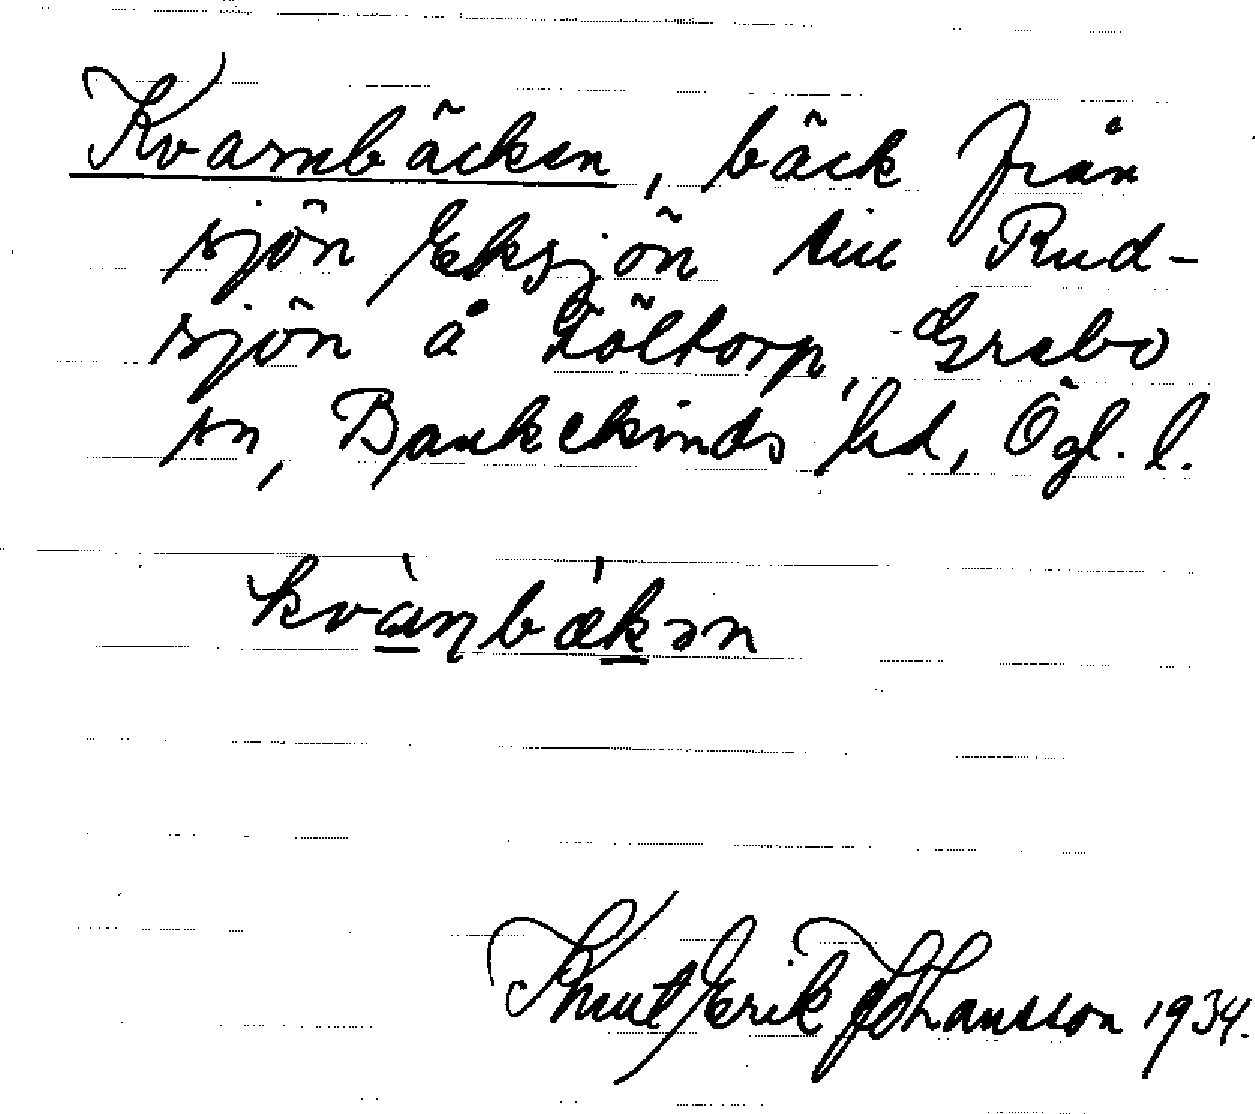 Kvarnbäcken, bäck från
sjön Eksjön till Rud-
sjön å Föltorp, Grebo
sn, Bankekinds hd, Ögl. l.
kvànbǽkən
Knut Erik Johansson 1934.